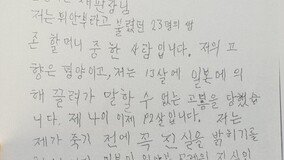 재판장님
저는 위안부라고 불렸던 23명의 생
존 할머니 중 한 사람입니다. 저의 고
향은 평양이고, 저는 13살에 일본에 의
해 끌려가 말할 수 없는 고통을 당했습
니다. 제 나이 이제 92살입니다. 저는
제가 죽기 전에 꼭 진실을 밝히기를